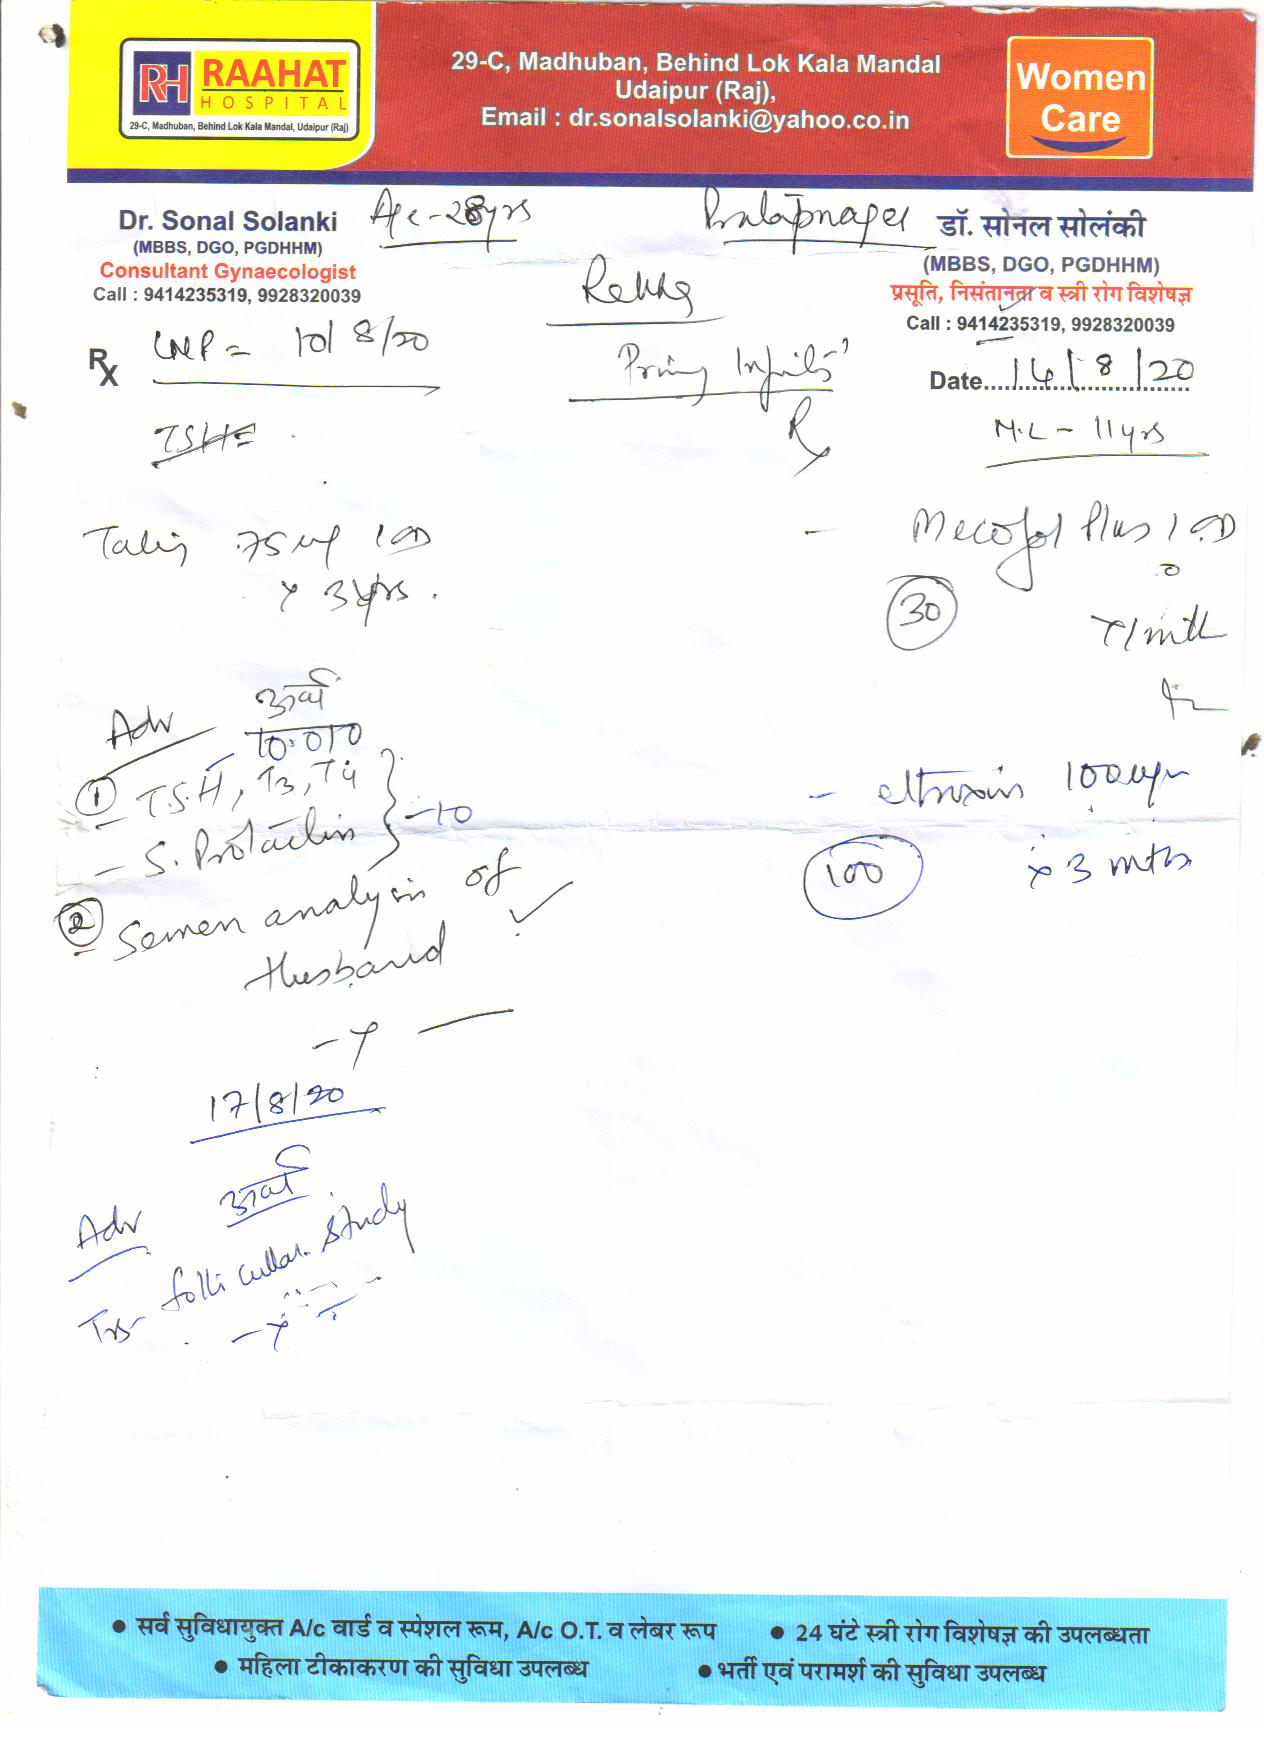 RH RAAHAT
HOSPITAL
29-C, Madhuban, Behind Lok Kala Mandal, Udaipur (Raj)
29-C, Madhuban, Behind Lok Kala Mandal
Udaipur (Raj),
Email : dr.sonalsolanki@yahoo.co.in
Women
Care
Dr. Sonal Solanki
(MBBS, DGO, PGDHHM)
Consultant Gynaecologist
Call : 9414235319, 9928320039
Age - 28yrs
Pratapnagar
Rekha
डॉ. सोनल सोलंकी
(MBBS, DGO, PGDHHM)
प्रसूति, निसंतानता व स्त्री रोग विशेषज्ञ
Call : 9414235319, 9928320039
Rx
LMP = 10/8/20
Date 14/8/20
TSH =
Rx
M.L - 11yrs
75 1 OD
x 3yrs.
Adv
1 T.S.H, T3, T4
- S. Prolactin
} - 10
2 Semen analysis of
Husband
- x
17/8/20
Adv
follicular study
- x
- Mecofol Plus 1 OD
30
x 1 mth
- eltroxin 100
100
x 3 mths
• सर्व सुविधायुक्त A/c वार्ड व स्पेशल रूम, A/c O.T. व लेबर रूप
• 24 घंटे स्त्री रोग विशेषज्ञ की उपलब्धता
• महिला टीकाकरण की सुविधा उपलब्ध
• भर्ती एवं परामर्श की सुविधा उपलब्ध